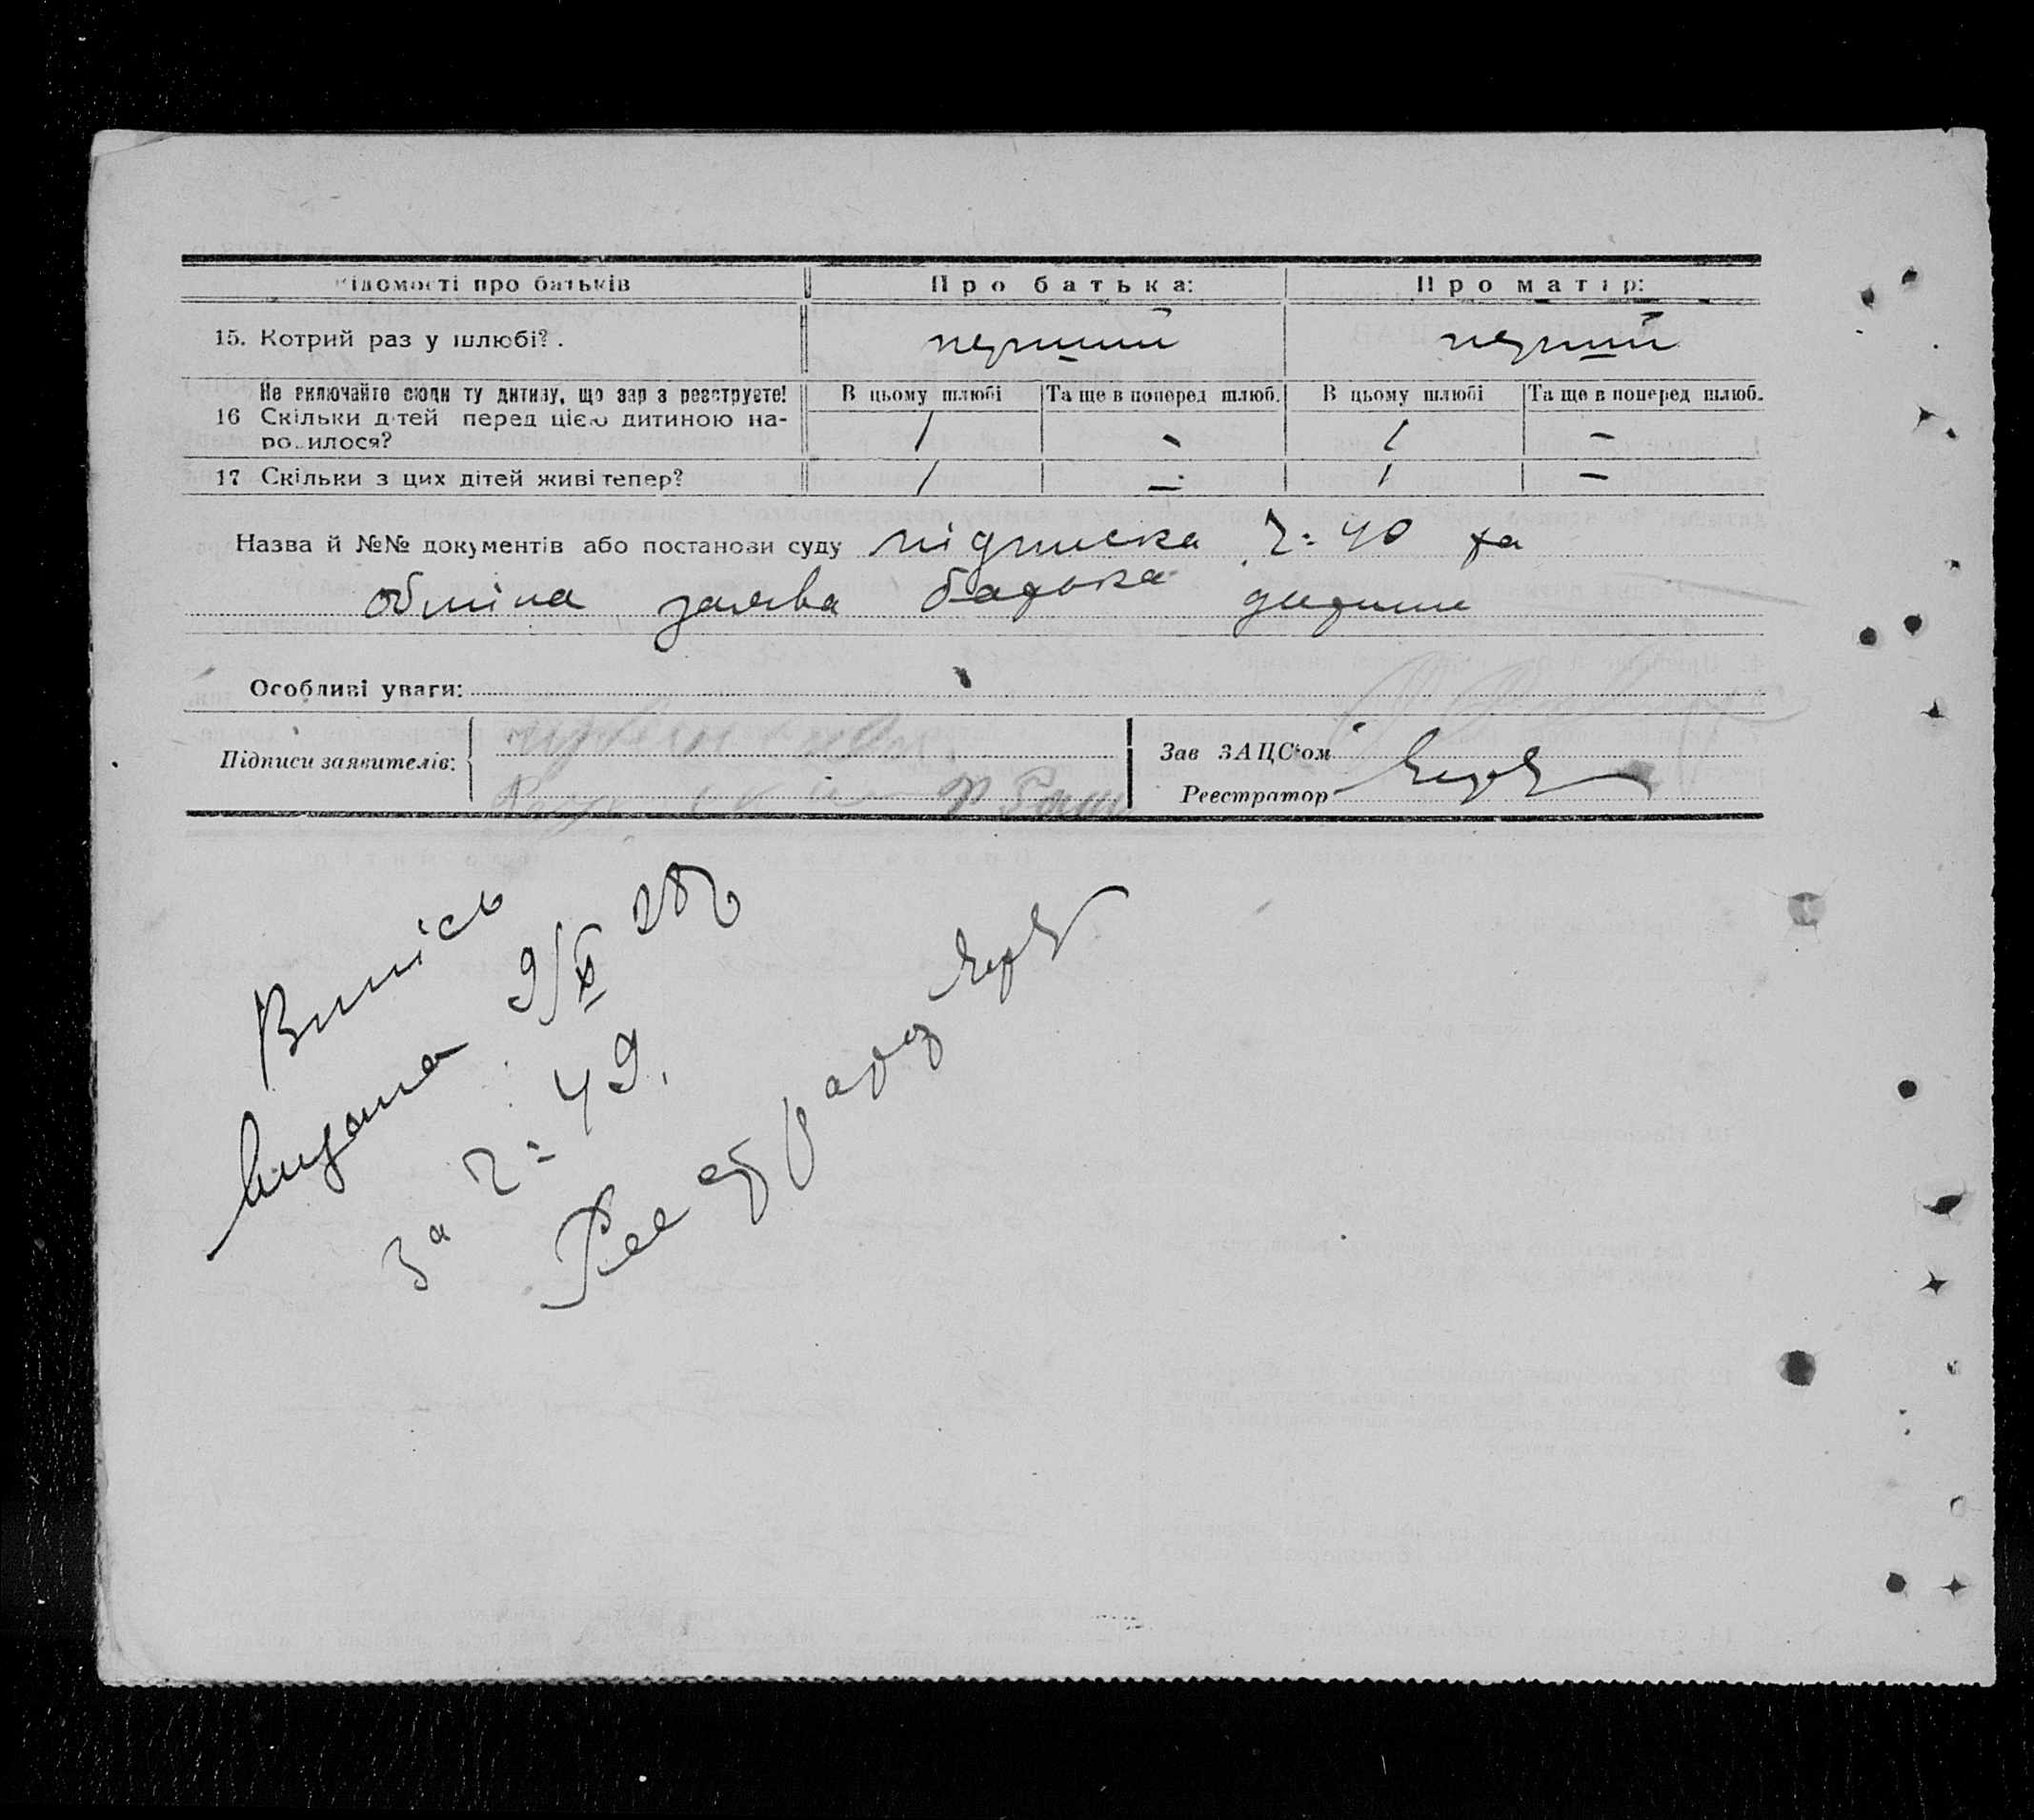 Відомості про батьків Про батька: Про матір:
15. Котрий раз у шлюбі? . перший перший
Не включайте сюди ту дитину, що зараз реєструєте! В цьому шлюбі Та ще в поперед шлюб. В цьому шлюбі Та ще в поперед шлюб.
16 Скільки дітей перед цією дитиною на-
родилося? 1 - 1 -
17 Скільки з цих дітей живі тепер? 1 - 1 -
Назва й №№ документів або постанови суду підписка Ч= 40 та
обміна заява батька дитини
Особливі уваги:
Підписи заявителів:
Зав ЗАЦС'ом
Реєстратор
Випись
видана 9/X 28р
за Ч= 49.
Реєстратор